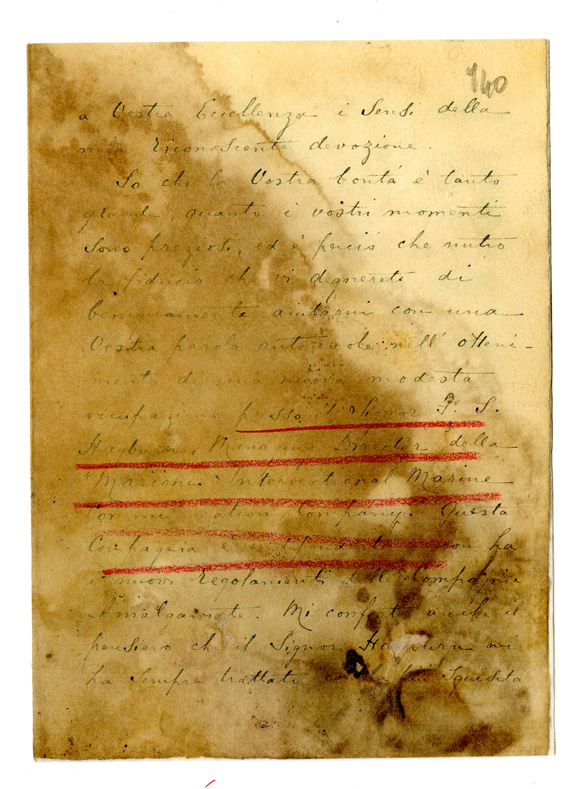 140
a Vostra Eccellenza i sensi della
mia riconoscente devozione.
So che la Vostra bontà è tanto
grande, quanto i vostri momenti
sono preziosi, ed è perciò che nutro
la fiducia che vi degnerete di
benignamente aiutarmi con una
Vostra parola autorevole nell' otteni-
mento di una nuova modesta
occupazione presso il Signor F. S.
Hayburn, Managing Director della
Marconi International Marine
Communication Company. Questa
Compagnia è indipendente e non ha
i nuovi regolamenti delle Compagnie
Amalgamate. Mi conforta anche il
pensiero che il Signor Hayburn mi
ha sempre trattato con la più squisita